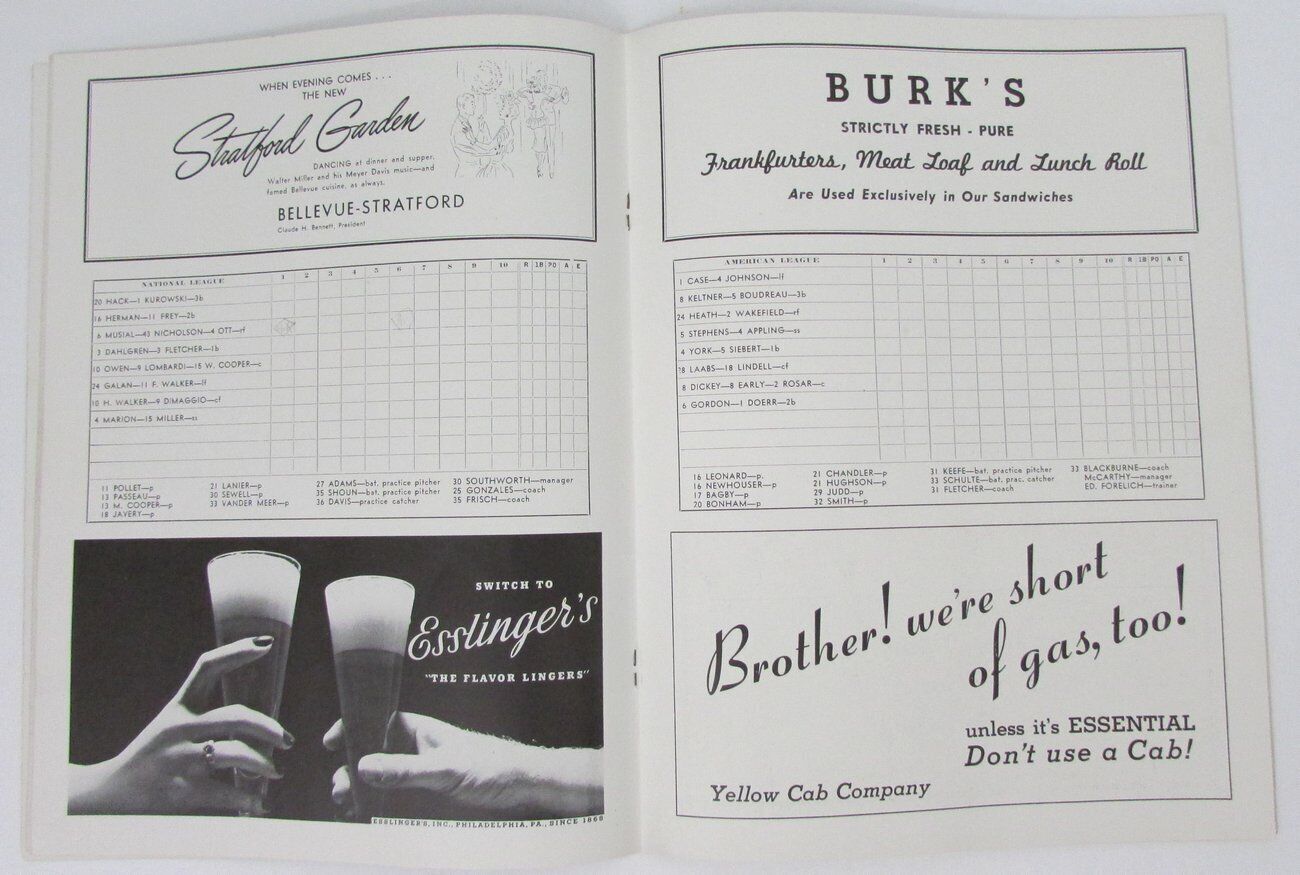 WHEN EVENING COMES . . .
THE NEW
Stratford Garden
DANCING at dinner and supper.
Walter Miller and his Meyer Davis music—and
famed Bellevue cuisine, as always.
BELLEVUE-STRATFORD
Claude H. Bennett, President
NATIONAL LEAGUE 1 2 3 4 5 6 7 8 9 10 R 1B PO A E
20 HACK—1 KUROWSKI—3b
16 HERMAN—11 FREY—2b
6 MUSIAL—43 NICHOLSON—4 OTT—rf
3 DAHLGREN—3 FLETCHER—1b
10 OWEN—9 LOMBARDI—15 W. COOPER—c
24 GALAN—11 F. WALKER—lf
10 H. WALKER—9 DIMAGGIO—cf
4 MARION—15 MILLER—ss
11 POLLET—p
13 PASSEAU—p
13 M. COOPER—p
18 JAVERY—p
21 LANIER—p
30 SEWELL—p
33 VANDER MEER—p
27 ADAMS—bat. practice pitcher
35 SHOUN—bat. practice pitcher
36 DAVIS—practice catcher
30 SOUTHWORTH—manager
25 GONZALES—coach
35 FRISCH—coach
SWITCH TO
Esslinger's
"THE FLAVOR LINGERS"
ESSLINGER'S, INC., PHILADELPHIA, PA., SINCE 1868
BURK'S
STRICTLY FRESH - PURE
Frankfurters, Meat Loaf and Lunch Roll
Are Used Exclusively in Our Sandwiches
AMERICAN LEAGUE 1 2 3 4 5 6 7 8 9 10 R 1B PO A E
1 CASE—4 JOHNSON—lf
8 KELTNER—5 BOUDREAU—3b
24 HEATH—2 WAKEFIELD—rf
5 STEPHENS—4 APPLING—ss
4 YORK—5 SIEBERT—1b
18 LAABS—18 LINDELL—cf
8 DICKEY—8 EARLY—2 ROSAR—c
6 GORDON—1 DOERR—2b
16 LEONARD—p.
16 NEWHOUSER—p
17 BAGBY—p
20 BONHAM—p
21 CHANDLER—p
21 HUGHSON—p
29 JUDD—p
32 SMITH—p
31 KEEFE—bat. practice pitcher
33 SCHULTE—bat. prac. catcher
31 FLETCHER—coach
33 BLACKBURNE—coach
McCARTHY—manager
ED. FORELICH—trainer
Brother! we're short
of gas, too!
unless it's ESSENTIAL
Don't use a Cab!
Yellow Cab Company